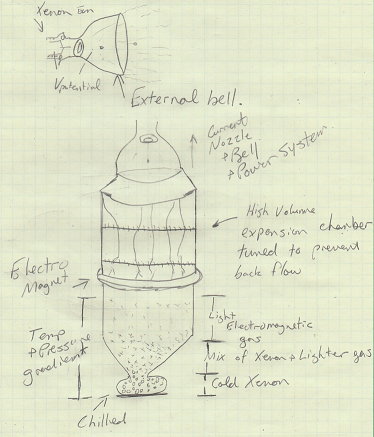 Xenon Ion
V potential
External bell.
Current
Nozzle
+ Bell
+ Power System
High Volume
expansion chamber
tuned to prevent
back flow
Electro
Magnet
Temp
+ Pressure
gradient
Light
Electromagnetic
gas
Mix of Xenon + Lighter gas
Cold Xenon
Chilled